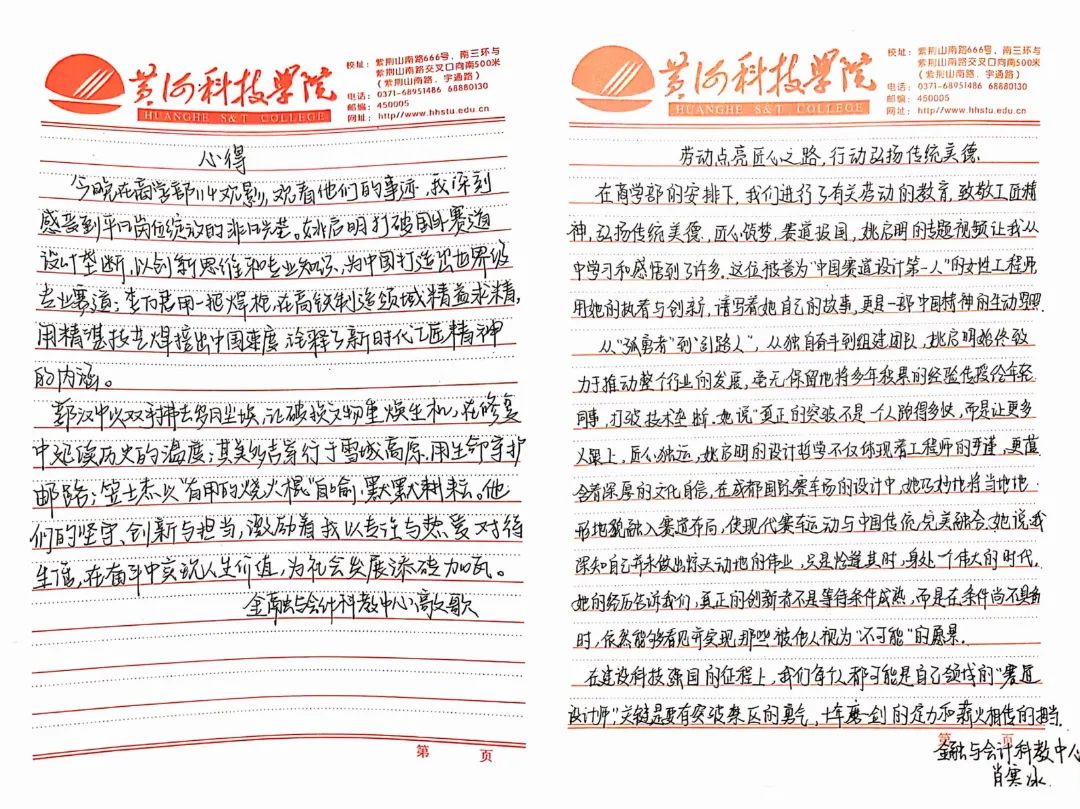 黄河科技学院
HUANGHE S&T COLLEGE
校址：紫荆山南路666号，南三环与
紫荆山南路交叉口向南500米
（紫荆山南路、宇通路）
电话：0371-68951486 68880130
邮编：450005
网址：http//www.hhstu.edu.cn
心得
今晚在商学部114观影，观看他们的事迹，我深刻
感受到平凡岗位绽放的非凡光芒。姚启明打破国外赛道
设计垄断，以创新思维和专业知识，为中国打造出世界级
专业赛道；李万君用一把焊枪，在高铁制造领域精益求精，
用精湛技艺焊接出中国速度，诠释了新时代工匠精神
的内涵。
郭汉中以双手拂去岁月尘埃，让破损文物重焕生机，在修复
中延续历史的温度；其美多吉穿行于雪域高原，用生命守护
邮路；竺士杰以“有用的烧火棍”自喻，默默耕耘。他
们的坚守、创新与担当，激励着我以专注与热爱对待
生活，在奋斗中实现人生价值，为社会发展添砖加瓦。
金融与会计科教中心高歌
第 页
黄河科技学院
HUANGHE S&T COLLEGE
校址：紫荆山南路666号，南三环与
紫荆山南路交叉口向南500米
（紫荆山南路、宇通路）
电话：0371-68951486 68880130
邮编：450005
网址：http//www.hhstu.edu.cn
劳动点亮匠心之路，行动弘扬传统美德
在商学部的安排下，我们进行了有关劳动的教育，致敬工匠精
神，弘扬传统美德，匠心筑梦，赛道报国，姚启明的专题视频让我从
中学习和感悟到了许多。这位被誉为“中国赛道设计第一人”的女性工程师
用她的执着与创新，谱写着她自己的故事，更是一部中国精神的生动写照.
从“孤勇者”到“引路人”，从独自奋斗到组建团队，姚启明始终致
力于推动整个行业的发展，毫无保留地将多年积累的经验传授给年轻
同事，打破技术垄断. 她说“真正的突破不是一个人跑得多快，而是让更多
人跟上，匠心独运，姚启明的设计哲学不仅体现着工程师的严谨，更蕴
含着深厚的文化自信，在成都国际赛车场的设计中，她巧妙地将当地地
形地貌融入赛道布局，使现代赛车运动与中国传统完美融合. 她说，我
深知自己并未做出惊天动地的伟业，只是恰逢其时，身处一个伟大的时代，
她的经历告诉我们，真正的创新者不是等待条件成熟，而是在条件尚不具备
时，依然能够看见并实现那些被他人视为“不可能”的愿景.
在建设科技强国的征程上，我们每个人都可能是自己领域的“赛道
设计师”关键是要有突破禁区的勇气，十年磨一剑的定力和薪火相传的担当.
第 页
金融与会计科教中心
肖寒冰